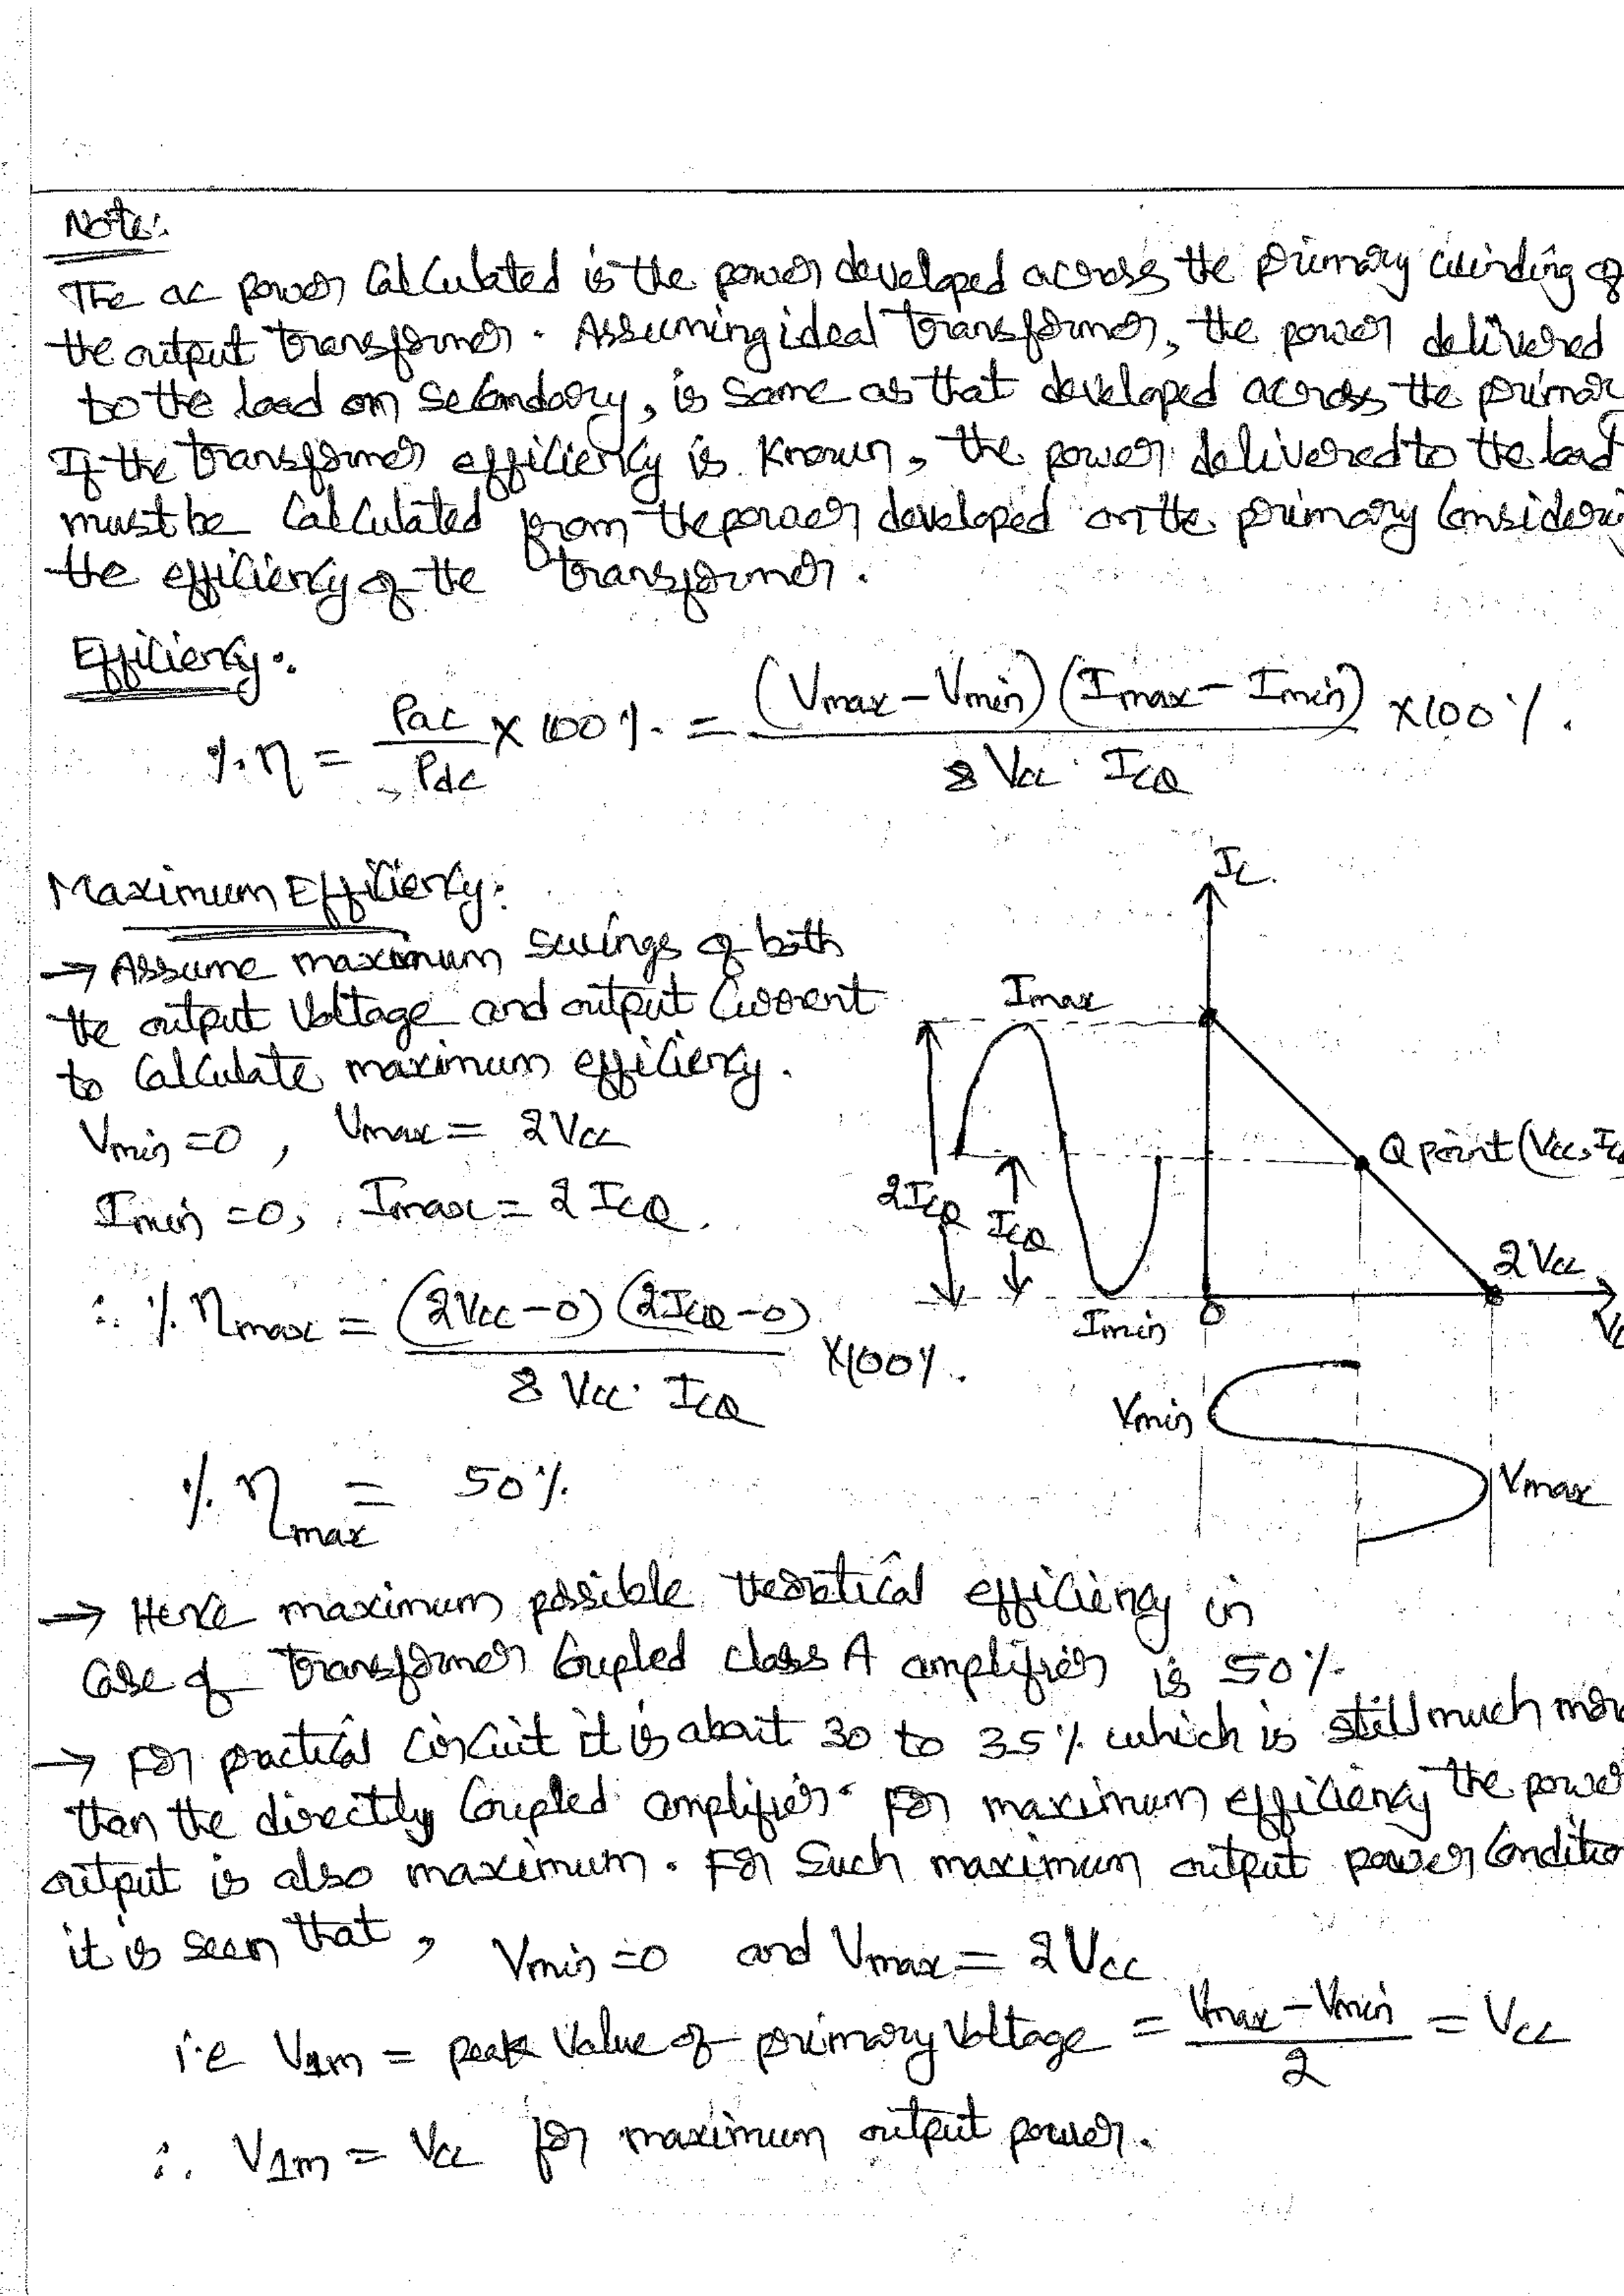 Note:
The ac power Calculated is the power developed across the primary winding of
the output transformer. Assuming ideal transformer, the power delivered
to the load on secondary, is same as that developed across the primar
If the transformer efficiency is known, the power delivered to the load
must be Calculated from the power developed on the primary Consideri
the efficiency of the transformer.
Efficiency:
% η = Pac/Pdc × 100 % = (Vmax − Vmin) (Imax − Imin) / 8 Vcc · ICQ × 100 %.
Maximum Efficiency:
→ Assume maximum swings of both
the output Voltage and output Current
to Calculate maximum efficiency.
Vmin = 0, Vmax = 2Vcc
Imin = 0, Imax = 2 ICQ.
∴ % ηmax = (2Vcc − 0) (2ICQ − 0) / 8 Vcc · ICQ × 100 %.
% ηmax = 50 %
Ic
Imax
Q point (Vcc, Ic
2ICQ
ICQ
2Vcc
Imin
0
Vmin
Vmax
→ Hence maximum possible theoretical efficiency in
Case of transformer Coupled class A amplifier is 50 %.
→ For practical Circuit it is about 30 to 35 % which is still much mor
than the directly Coupled amplifier. For maximum efficiency the power
output is also maximum. For Such maximum output power Conditio
it is seen that, Vmin = 0 and Vmax = 2Vcc
i.e V1m = peak Value of primary Voltage = Vmax − Vmin / 2 = Vcc
∴ V1m = Vcc for maximum output power.